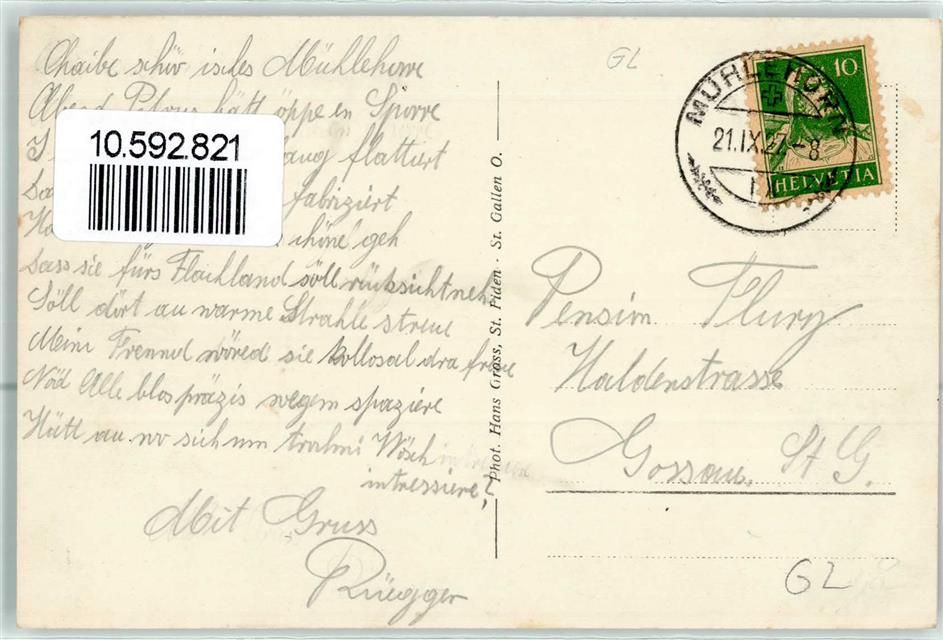 Chaibe schöv isches Mühlehorn
Abend Pilous hätt öppe en Sporre
I
flattiert
Das
fabriziert
chöne geh
Dass sie fürs Flachland söll rücksicht neh,
Söll dört au warme Strahle streue
Meini Freund wöred sie kollosal dra freue
Nöd Alle blos präzis wegem spaziere
Hätt au no sich um trochni Wösch
intressiere?
Mit Gruss
Rüegger
10.592.821
Phot. Hans Gross, St. Fiden - St. Gallen O.
GL
MÜHLEHORN
21.IX.27.-8
10
HELVETIA
Pension Flury
Haldenstrasse
Gossau, St G.
GL